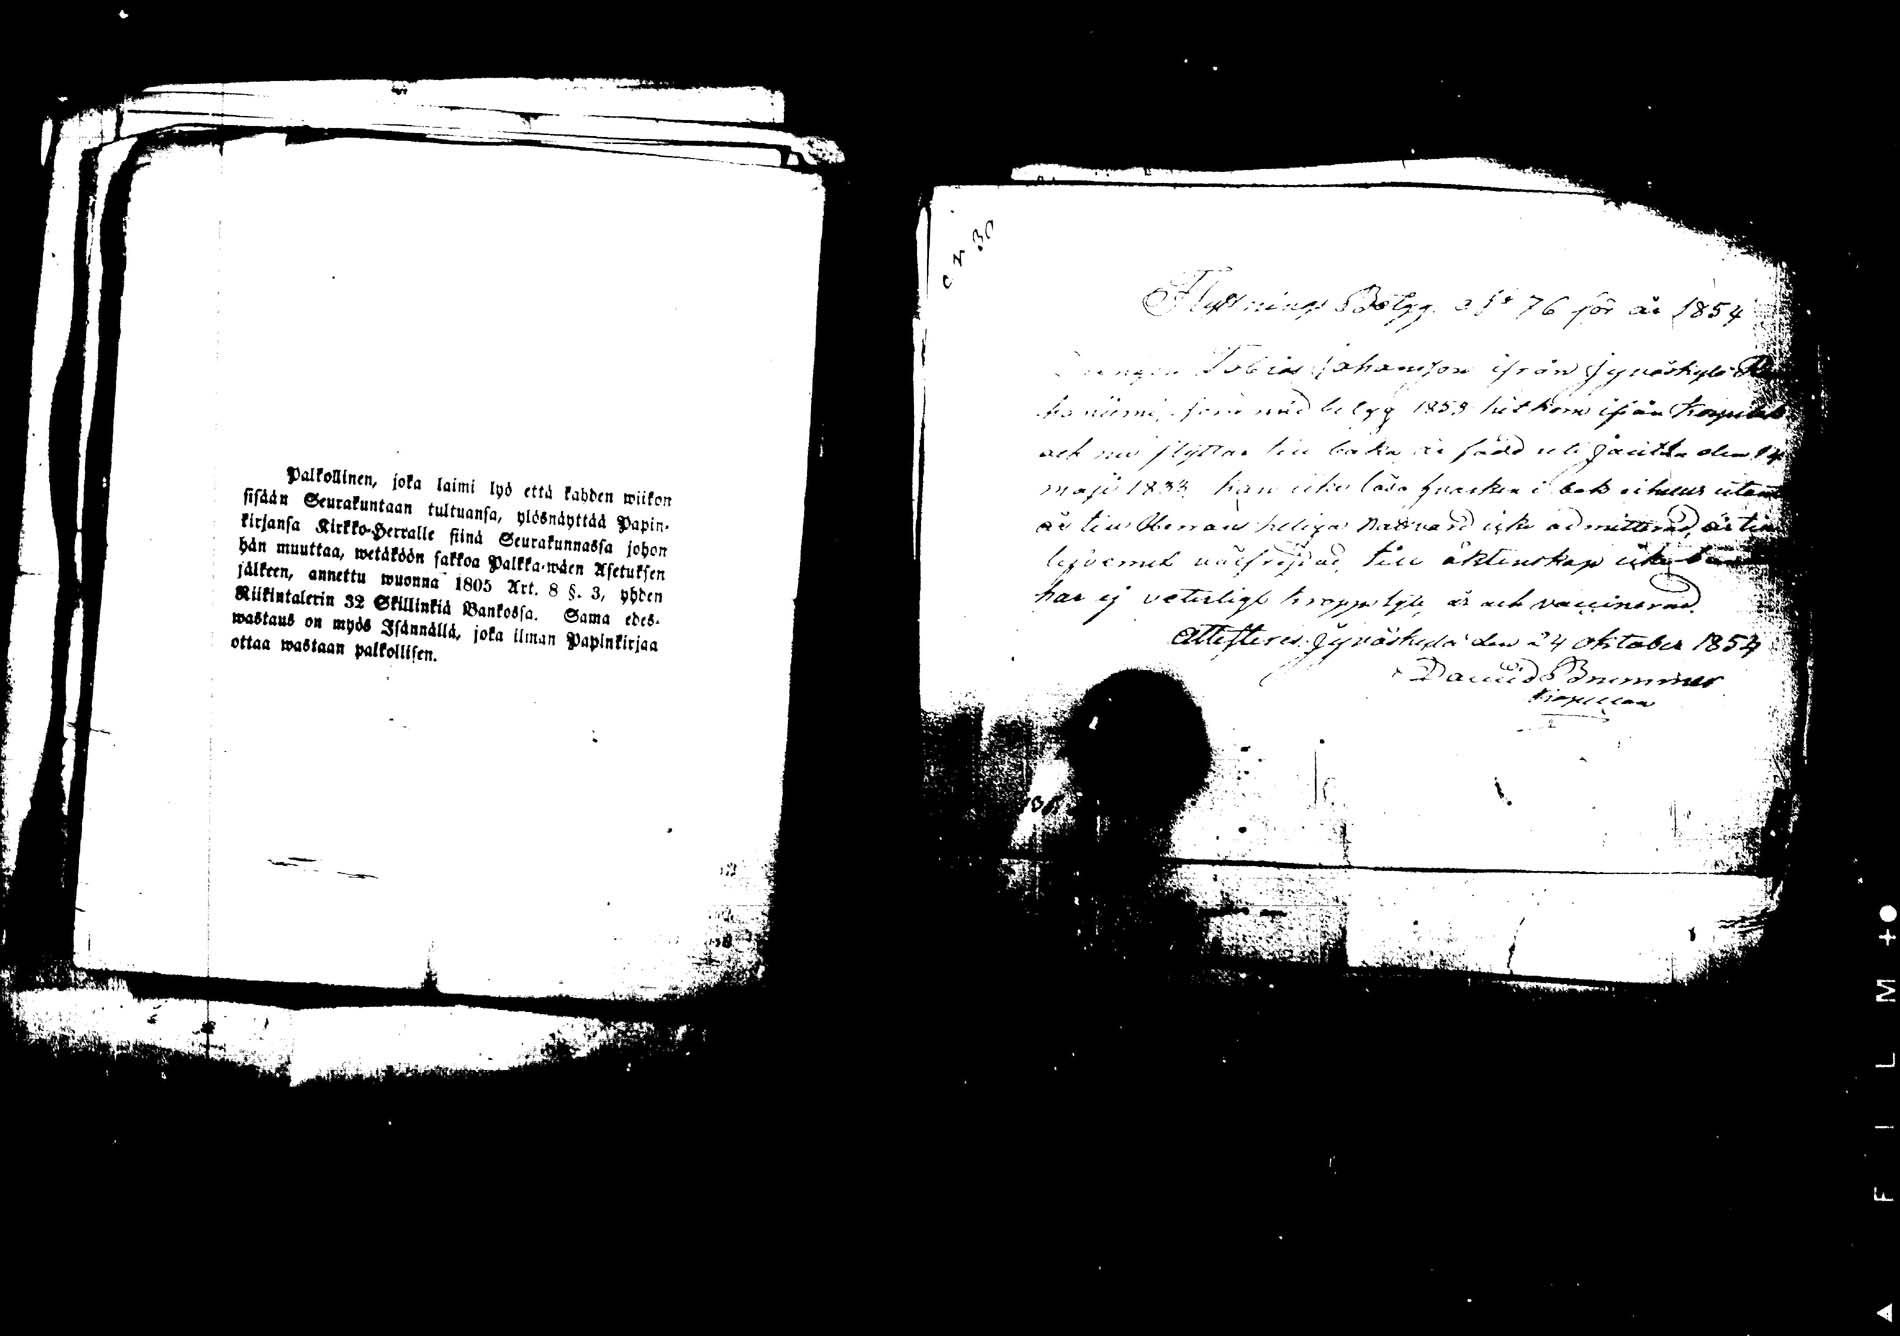 Palkollinen, joka laimi lyö että kahden wiikon
sisään Seurakuntaan tultuansa, ylösnäyttää Papin-
kirjansa Kirkko-Herralle siinä Seurakunnassa johon
hän muuttaa, wetäköön sakkoa Palkka-wäen Asetuksen
jälkeen, annettu wuonna 1805 Art. 8 §. 3, yhden
Riikintalerin 32 Skillinkiä Bankossa. Sama edes-
wastaus on myös Isännällä, joka ilman Papinkirjaa
ottaa wastaan palkollisen.
N 30
Flyttnings Betyg N:o 76 för år 1854
Drengen Tobias Johansson ifrån Jyväskylä
med betyg 1853 hitkom ifrån
och nu flyttar till baka är född uti den 14
maji 1833, kan icke läsa hvarken i bok eller utan
är till Herrans heliga Nattvard icke admitterad, är till
lefvernet välfrejdad, till äktenskap icke
har ej veterligt kroppslyte är och vaccinerad.
Attesteres Jyväskylä den 24 oktober 1854
David Brummer
Kapellan
FILM